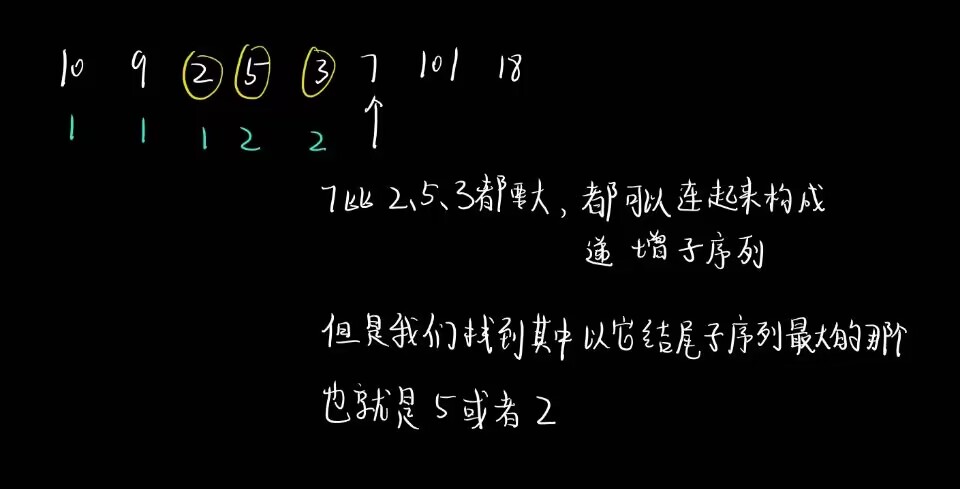 10 9 2 5 3 7 101 18
1 1 1 2 2
7比 2、5、3都要大，都可以连起来构成
递增子序列
但是我们找到其中以它结尾子序列最大的那个
也就是 5 或者 2